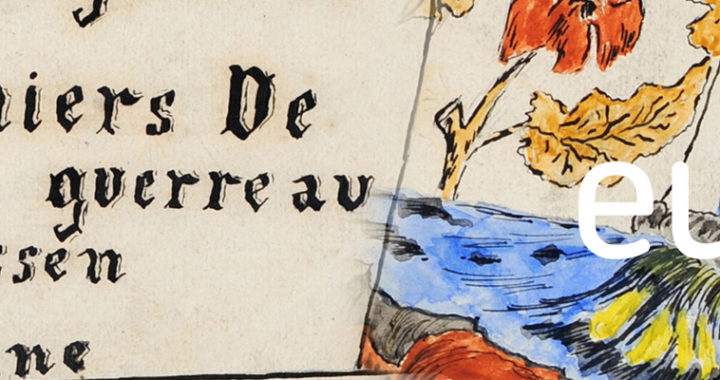 niers De
guerre au
ssen
ne
eu